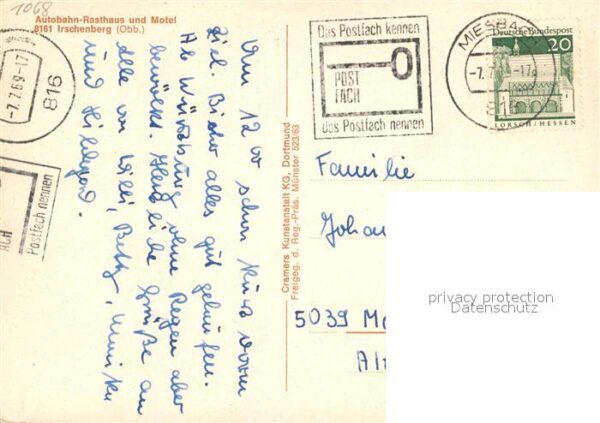 1068
Autobahn-Rasthaus und Motel
8161 Irschenberg (Obb.)
-7.7.69-17
816
Postfach nennen
FACH
Um 12 00 schon kurz vorm
Ziel. Bisher alles gut gelaufen.
Ab Würzburg ohne Regen aber
bewölkt. Herzliche Grüße an
alle von Willi, Betty, Monika
und Hildegard.
Cramers Kunstanstalt KG, Dortmund
Freigeg. d. Reg.-Präs. Münster 523/63
Das Postfach kennen
POST
FACH
das Postfach nennen
MIESBA
-7.7
-17
816
Deutsche Bundespost
20
LORSCH/HESSEN
Familie
Joha
5039 M
Alt
privacy protection
Datenschutz